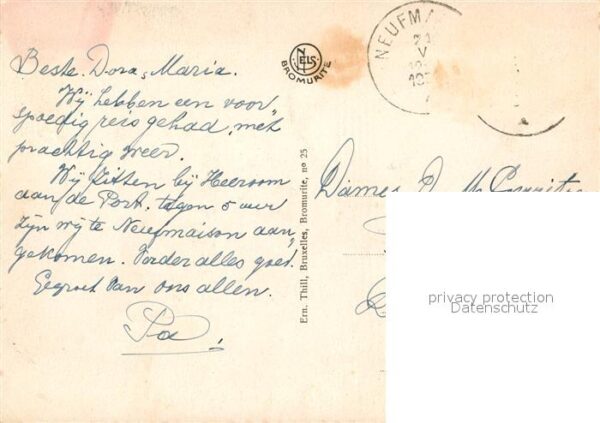 Beste Dora, Maria.
Wij hebben een voor"
spoedig reis gehad, met
prachtig weer.
Wij zitten bij Heeroom
aan de Port. tegen 5 uur
zijn wij te Neufmaison aan"
gekomen. Verder alles goed.
Gegroet van ons allen.
Pa
NELS
BROMURITE
Ern. Thill, Bruxelles, Bromurite, no 25
NEUFMA
21
V
Dames D. M.
privacy protection
Datenschutz